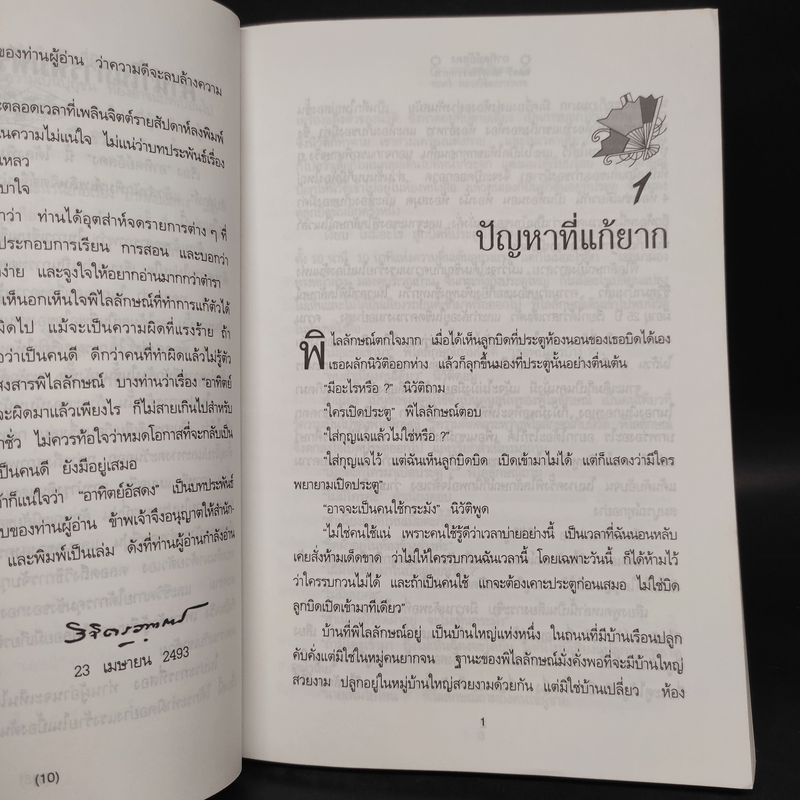 ของท่านผู้อ่าน ว่าความดีจะลบล้างความ
ะตลอดเวลาที่เพลินจิตต์รายสัปดาห์ลงพิมพ์
นความไม่แน่ใจ ไม่แน่ว่าบทประพันธ์เรื่อง
หลว
บาใจ
าว่า ท่านได้อุตส่าห์จดรายการต่าง ๆ ที่
ประกอบการเรียน การสอน และบอกว่า
ง่าย และจูงใจให้อยากอ่านมากกว่าตำรา
เห็นอกเห็นใจพิไลลักษณ์ที่ทำการแก้ตัวได้
ผิดไป แม้จะเป็นความผิดที่แรงร้าย ถ้า
อว่าเป็นคนดี ดีกว่าคนที่ทำผิดแล้วไม่รู้ตัว
สงสารพิไลลักษณ์ บางท่านว่าเรื่อง "อาทิตย์
จะผิดมาแล้วเพียงไร ก็ไม่สายเกินไปสำหรับ
าชั่ว ไม่ควรท้อใจว่าหมดโอกาสที่จะกลับเป็น
เป็นคนดี ยังมีอยู่เสมอ
จ้าก็แน่ใจว่า "อาทิตย์อัสดง" เป็นบทประพันธ์
บของท่านผู้อ่าน ข้าพเจ้าจึงอนุญาตให้สำนัก-
และพิมพ์เป็นเล่ม ดังที่ท่านผู้อ่านกำลังอ่าน
23 เมษายน 2493
(10)
1
ปัญหาที่แก้ยาก
พิไลลักษณ์ตกใจมาก เมื่อได้เห็นลูกบิดที่ประตูห้องนอนของเธอบิดได้เอง
เธอผลักนิวัติออกห่าง แล้วก็ลุกขึ้นมองที่ประตูนั้นอย่างตื่นเต้น
"มีอะไรหรือ ?" นิวัติถาม
"ใครเปิดประตู" พิไลลักษณ์ตอบ
"ใส่กุญแจแล้วไม่ใช่หรือ ?"
"ใส่กุญแจไว้ แต่ฉันเห็นลูกบิดบิด เปิดเข้ามาไม่ได้ แต่ก็แสดงว่ามีใคร
พยายามเปิดประตู"
"อาจจะเป็นคนใช้กระมัง" นิวัติพูด
"ไม่ใช่คนใช้แน่ เพราะคนใช้รู้ดีว่าเวลาบ่ายอย่างนี้ เป็นเวลาที่ฉันนอนหลับ
เคยสั่งห้ามเด็ดขาด ว่าไม่ให้ใครรบกวนฉันเวลานี้ โดยเฉพาะวันนี้ ก็ได้ห้ามไว้
ว่าใครรบกวนไม่ได้ และถ้าเป็นคนใช้ แกจะต้องเคาะประตูก่อนเสมอ ไม่ใช่บิด
ลูกบิดเปิดเข้ามาทีเดียว"
บ้านที่พิไลลักษณ์อยู่ เป็นบ้านใหญ่แห่งหนึ่ง ในถนนที่มีบ้านเรือนปลูก
คับคั่งแต่มิใช่ในหมู่คนยากจน ฐานะของพิไลลักษณ์มั่งคั่งพอที่จะมีบ้านใหญ่
สวยงาม ปลูกอยู่ในหมู่บ้านใหญ่สวยงามด้วยกัน แต่มิใช่บ้านเปลี่ยว ห้อง
1